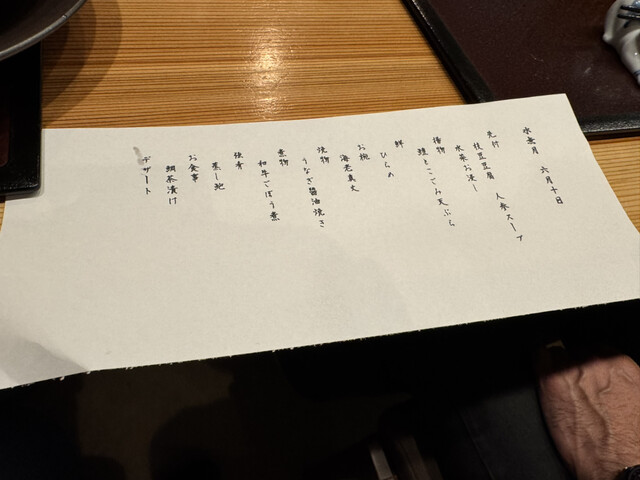 水無月 六月十日
先付
枝豆豆腐 人参スープ
水菜お浸し
揚物
鱧とごごみ天ぷら
鮮
ひらめ
お椀
海老真丈
焼物
うなぎ醤油焼き
煮物
和牛ごぼう煮
強肴
蒸し鮑
お食事
鯛茶漬け
デザート